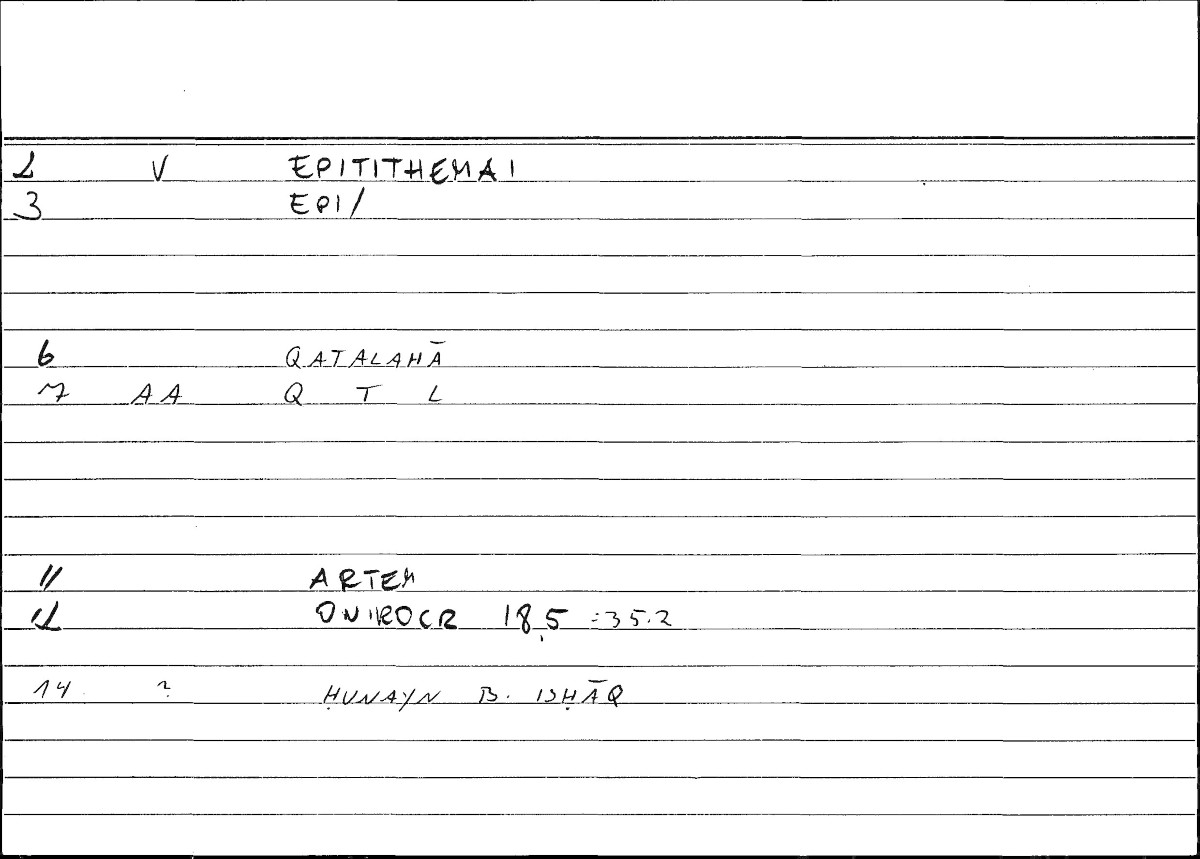 2 V EPITITHEMAI
3 EPI/
6 QATALAHĀ
7 AA Q T L
11 ARTEM
12 ONIROCR 18,5 =35.2
14 ? ḤUNAYN B. ISḤĀQ